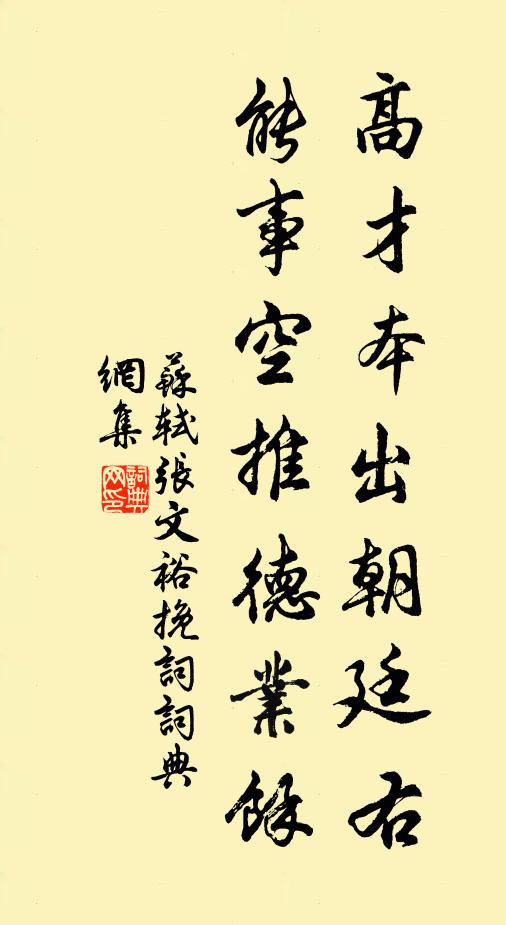 高才本出朝廷右
能事空推德業餘
蘇軾張文裕挽詞詞典
網集
詞典
网印